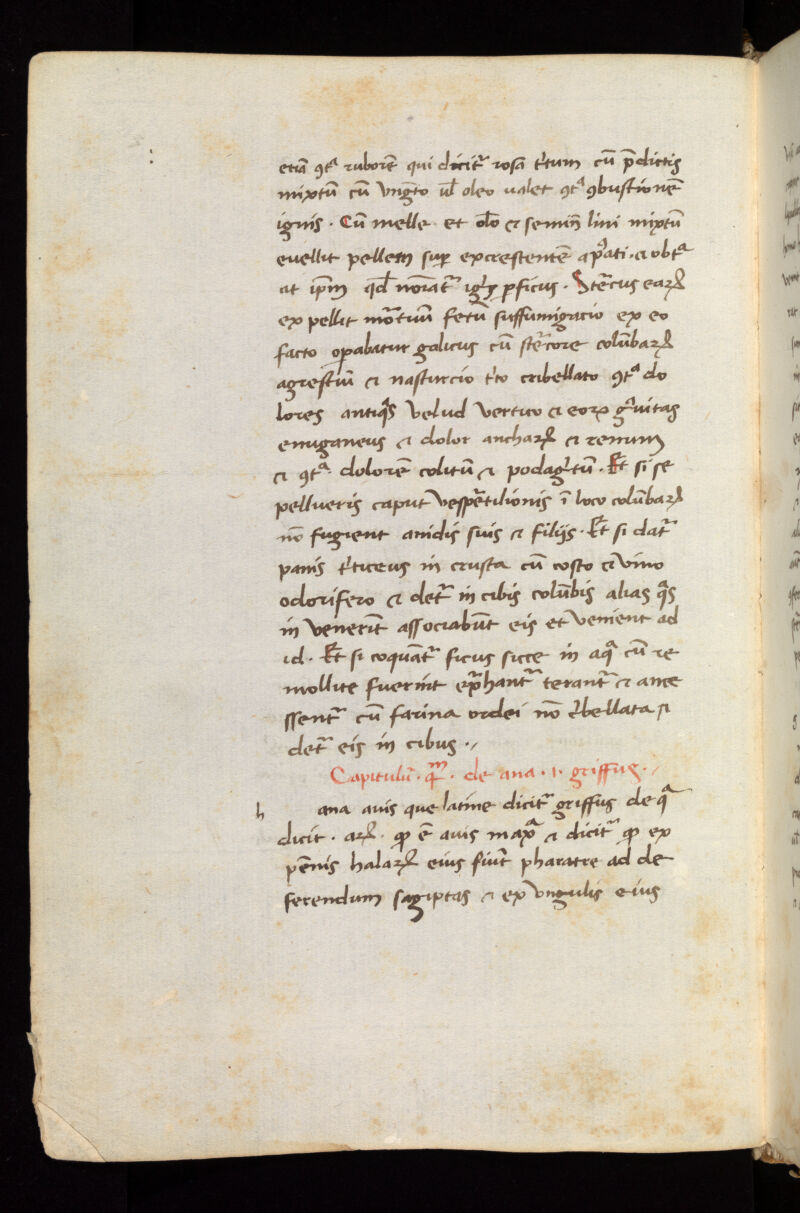 etiā ꝯtᵃ ruborē qui dicit᷑ rosa t͛tum cū p̄dictis
mixtū cū vng̅to ul̄ oleo ualet ꝯtᵃ ꝯbustionē
ignis . Cū melle et oleo ⁊ semīe lini mixtū
euellit pellem sup̱ excrescentē
at ip̄m qd̄ noīat᷑ ꝑsicus . Stercus earꝝ
expellit mortuū fetū suffumigacio ex eo
facto oꝑabatur galicus cū st͛core colūbarꝝ
agrestiū ⁊ nasturcio t͛to cribellato ꝯtᵃ do
lores antiq̊s velud vertico ⁊ eorꝝ gᵃuitas
emigraneus ⁊ dolor ancharꝝ ⁊ renum
⁊ ꝯtᵃ dolorē colicū ⁊ podagᵃcū . Et si se
pellueris caput vesp̱tilionis ī loco colūbarꝝ
nō fugient a nidis suis ⁊ filijs . Et si dat᷑
panis t͛ticeus in crusta cū costo ⁊ vino
odorifero ⁊ det᷑ in cibis colūbis alias q̊s
in venerīt associabūt eis et venient ad
id . Et si coquāt᷑ ficus sicce in aqᵃ cū re
mollite fuerint ext͛hant᷑ terant᷑ ⁊ ance
ssent᷑ cū farina ordei nō c͛bellata ⁊
det᷑ eis in cibus .
Capitulū . qᵐ . de ana . i . griffus .
h ana auis que latine dicit᷑ griffus de qᵃ
dicit . arꝝ . ꝙ ē auis maxᵃ ⁊ dicit᷑ ꝙ ex
pēnis halarꝝ eius fiūt pharatre ad de
ferendum sagiptas ⁊ ex vngulis eius